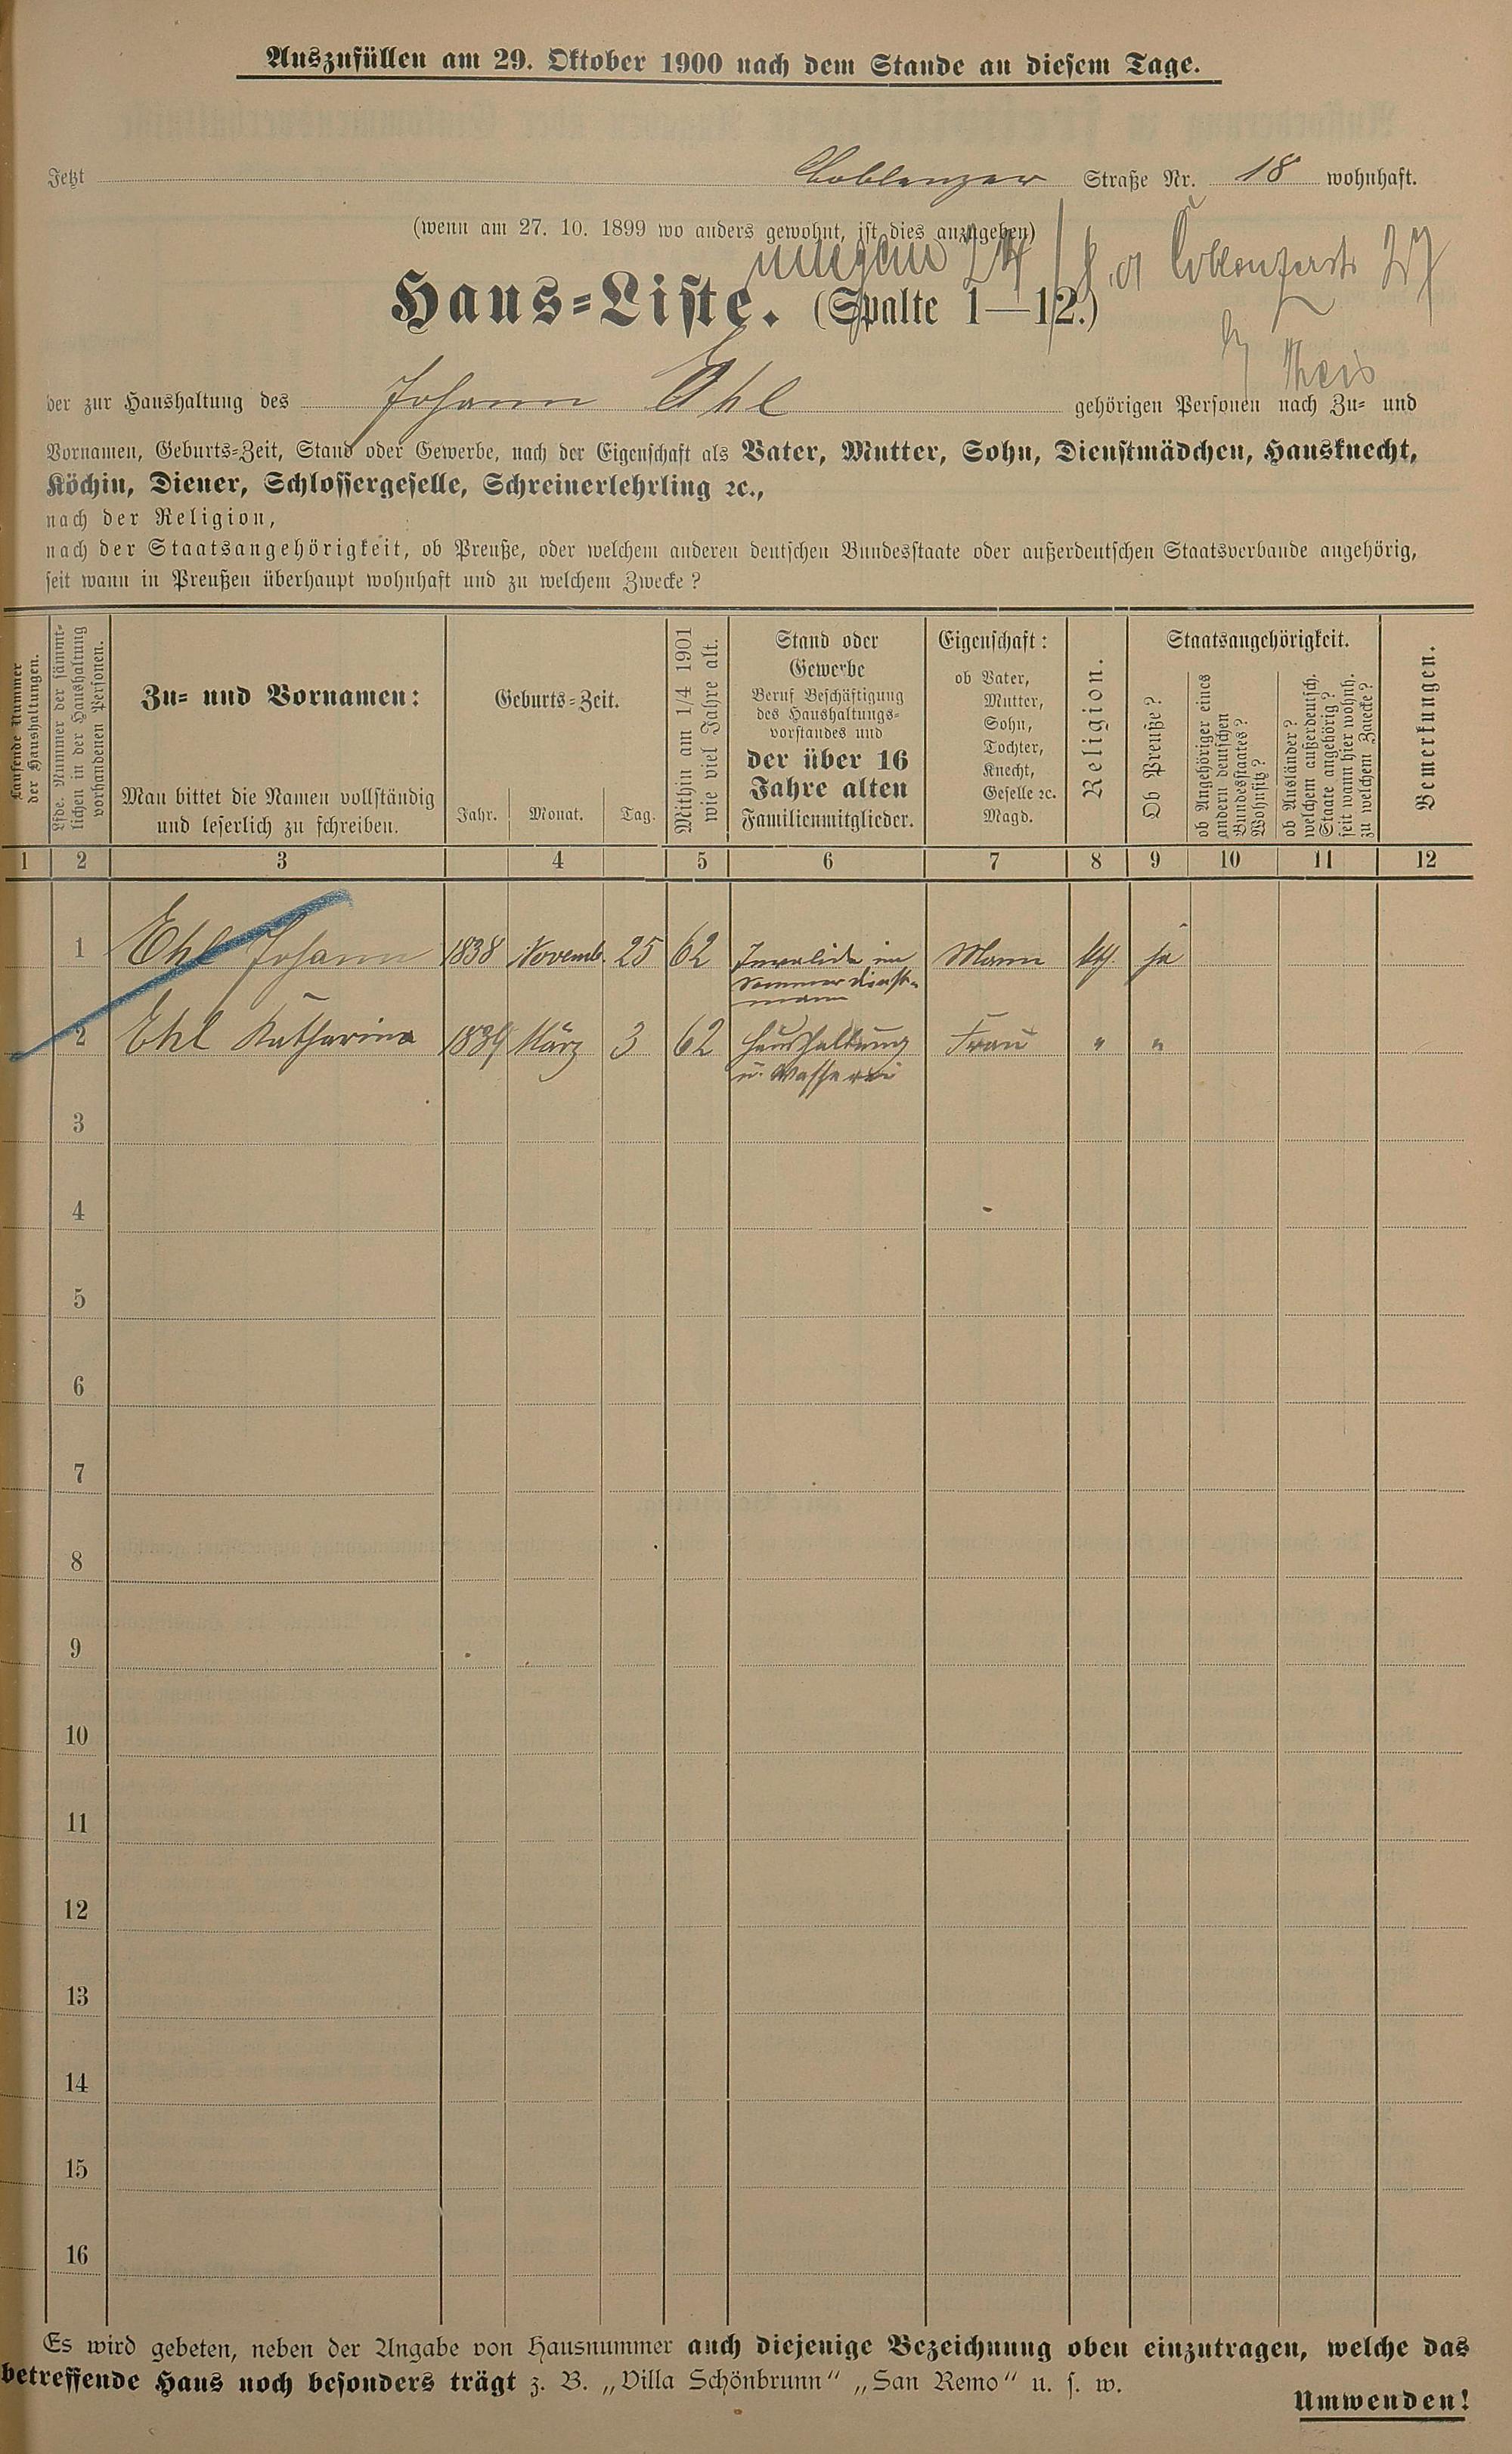 Auszufüllen am 29. Oktober 1900 nach dem Stande an diesem Tage.
Jetzt Coblenzer Straße Nr. 18 wohnhaft.
(wenn am 27. 10. 1899 wo anders gewohnt, ist dies anzugeben)
Coblenzerstr 27
Haus=Liste. (Spalte 1—12.)
Theis
der zur Haushaltung des Johann Ehl gehörigen Personen nach Zu= und
Vornamen, Geburts=Zeit, Stand oder Gewerbe, nach der Eigenschaft als Vater, Mutter, Sohn, Dienstmädchen, Hausknecht,
Köchin, Diener, Schlossergeselle, Schreinerlehrling ꝛc.,
nach der Religion,
nach der Staatsangehörigkeit, ob Preuße, oder welchem anderen deutschen Bundesstaate oder außerdeutschen Staatsverbande angehörig,
seit wann in Preußen überhaupt wohnhaft und zu welchem Zwecke?
Laufende Nummer
der Haushaltungen.
Lfde. Nummer der sämmt=
lichen in der Haushaltung
vorhandenen Personen.
Zu= und Vornamen:
Man bittet die Namen vollständig
und leserlich zu schreiben.
Geburts=Zeit.
Jahr. Monat. Tag.
Mithin am 1/4 1901
wie viel Jahre alt.
Stand oder
Gewerbe
Beruf Beschäftigung
des Haushaltungs=
vorstandes und
der über 16
Jahre alten
Familienmitglieder.
Eigenschaft:
ob Vater,
Mutter,
Sohn,
Tochter,
Knecht,
Geselle ꝛc.
Magd.
Religion.
Staatsangehörigkeit.
Ob Preuße?
ob Angehöriger eines
andern deutschen
Bundesstaates?
Wohnsitz?
ob Ausländer?
welchem außerdeutsch.
Staate angehörig?
seit wann hier wohnh.
zu welchem Zwecke?
Bemerkungen.
1 2 3 4 5 6 7 8 9 10 11 12
1 Ehl Johann 1838 Novemb. 25 62 Invalide im Mann kth. ja
Sommer dienst=
mann
2 Ehl Katharina 1839 März 3 62 Haushaltung Frau " "
u. Wascherei
3
4
5
6
7
8
9
10
11
12
13
14
15
16
Es wird gebeten, neben der Angabe von Hausnummer auch diejenige Bezeichnung oben einzutragen, welche das
betreffende Haus noch besonders trägt z. B. „Villa Schönbrunn" „San Remo" u. s. w.
Umwenden!